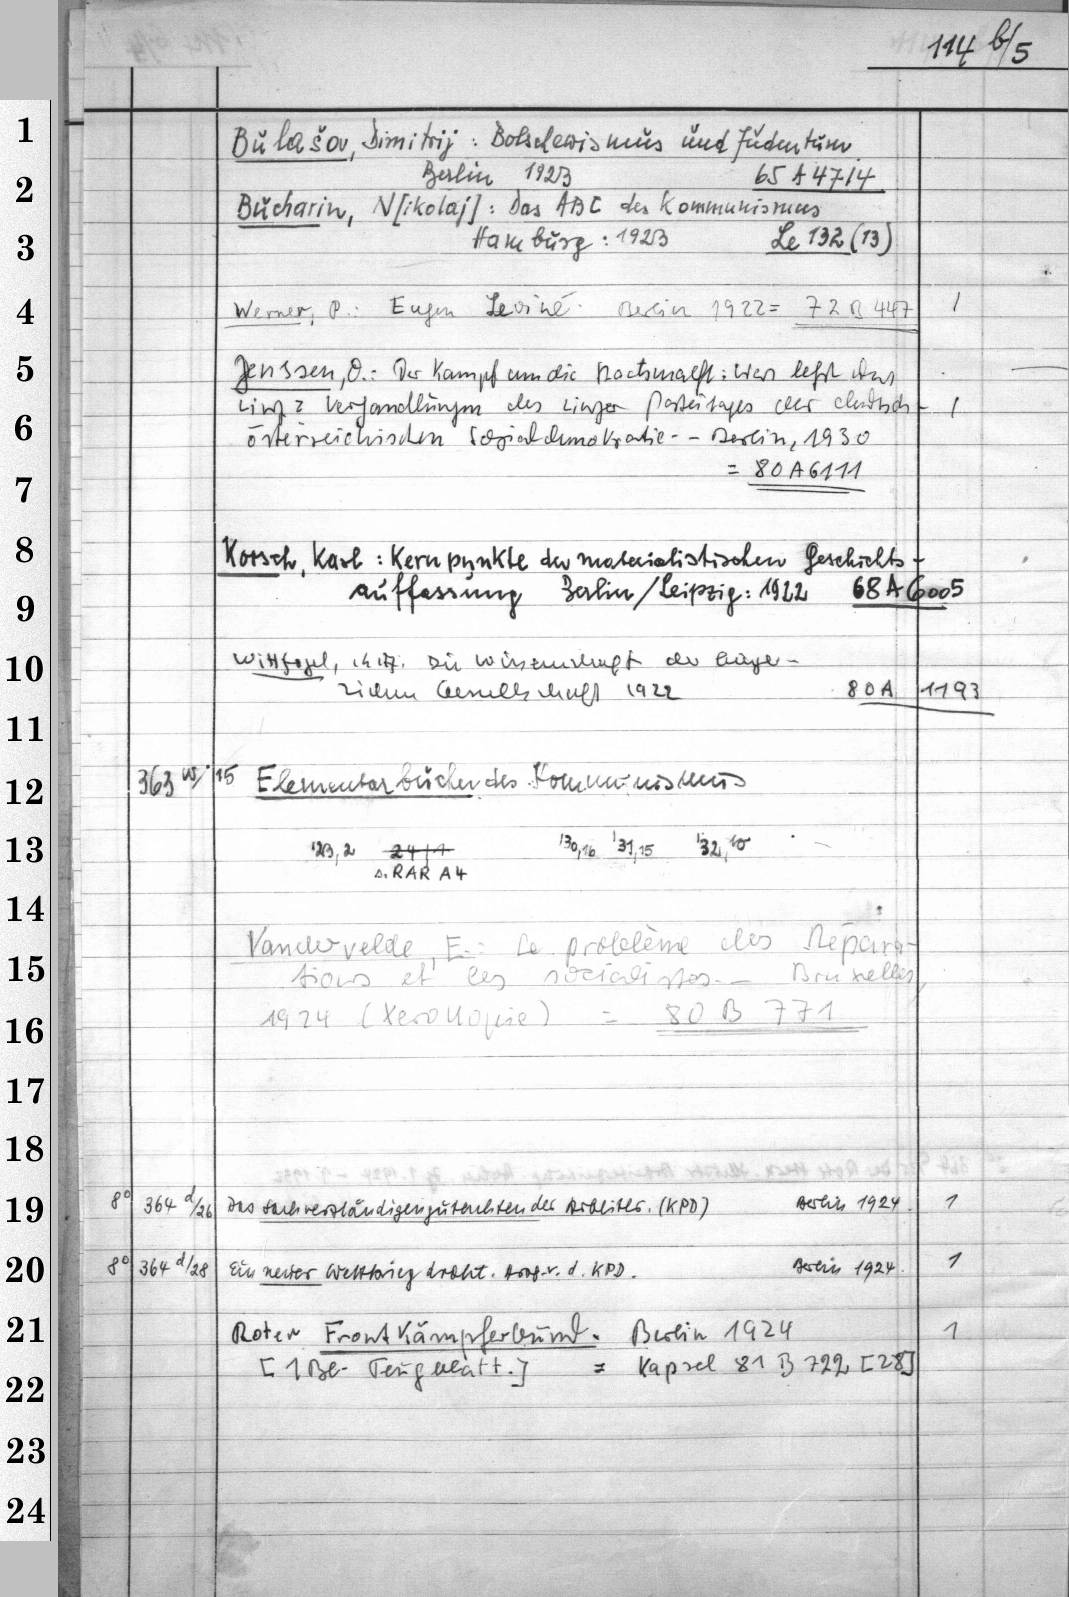 114 b/5
1 Bulašov, Dimitrij: Bolschewismus und Judentum
2 Berlin 1923 65 A 4714
Bucharin, N[ikolaj]: Das ABC des Kommunismus
3 Hamburg: 1923 Le 132 (13)
4 Werner, P.: Eugen Leviné. Berlin 1922 = 72 B 447 1
5 Jenssen, O.: Der Kampf um die Staatsmacht: Was lehrt das
Linz? Verhandlungen des Linzer Parteitages der deutsch- 1
6 österreichischen Sozialdemokratie. - Berlin, 1930
7 = 80 A 6111
8 Korsch, Karl: Kernpunkte der materialistischen Geschichts-
9 auffassung Berlin/Leipzig: 1922 68 A 6005
10 Wittfogel, Die Wissenschaft der bürger-
lichen Gesellschaft 1922 80 A 1193
11
12 363 w/15 Elementarbücher des Kommunismus
13 '23,2 24,1 '30,16 '31,15 '32,10
s. RAR A 4
14
15 Vandervelde, E.: Le problème des Répara-
tions et les socialistes. - Bruxelles,
16 1924 (Xerokopie) = 80 B 771
17
18
19 8° 364 d/26 Das Sachverständigengutachten der Arbeiter. (KPD) Berlin 1924. 1
20 8° 364 d/28 Ein neuer Weltkrieg droht. Hrsg. v. d. KPD. Berlin 1924. 1
21 Roter Frontkämpferbund. Berlin 1924 1
22 [1 Bl. Flugblatt.] = Kapsel 81 B 722 [28]
23
24